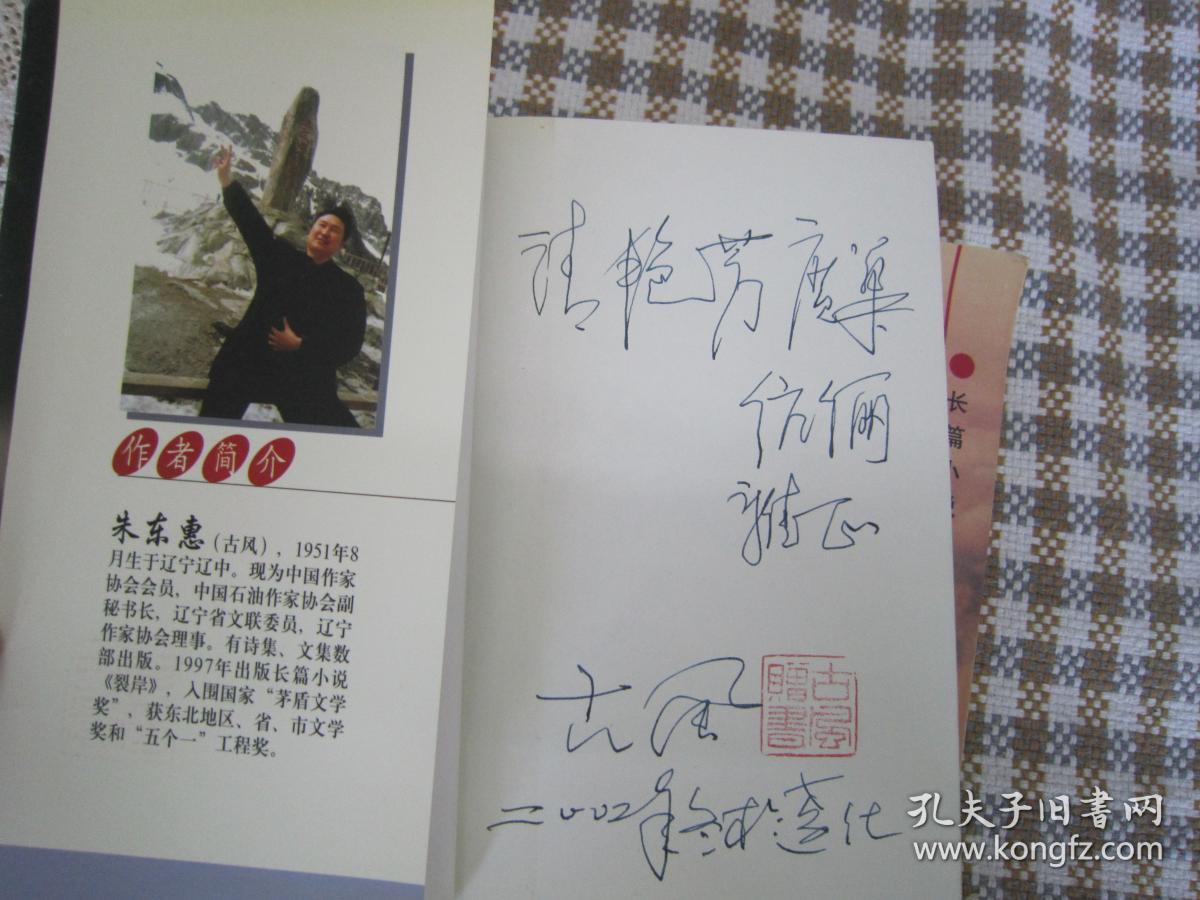 作者简介
朱东惠（古风），1951年8
月生于辽宁辽中。现为中国作家
协会会员，中国石油作家协会副
秘书长，辽宁省文联委员，辽宁
作家协会理事。有诗集、文集数
部出版。1997年出版长篇小说
《裂岸》，入围国家“茅盾文学
奖”，获东北地区、省、市文学
奖和“五个一”工程奖。
请艳芳
伉俪
雅正
古风
古风赠书
二〇〇二年冬于
长篇小
孔夫子旧书网
www.kongfz.com